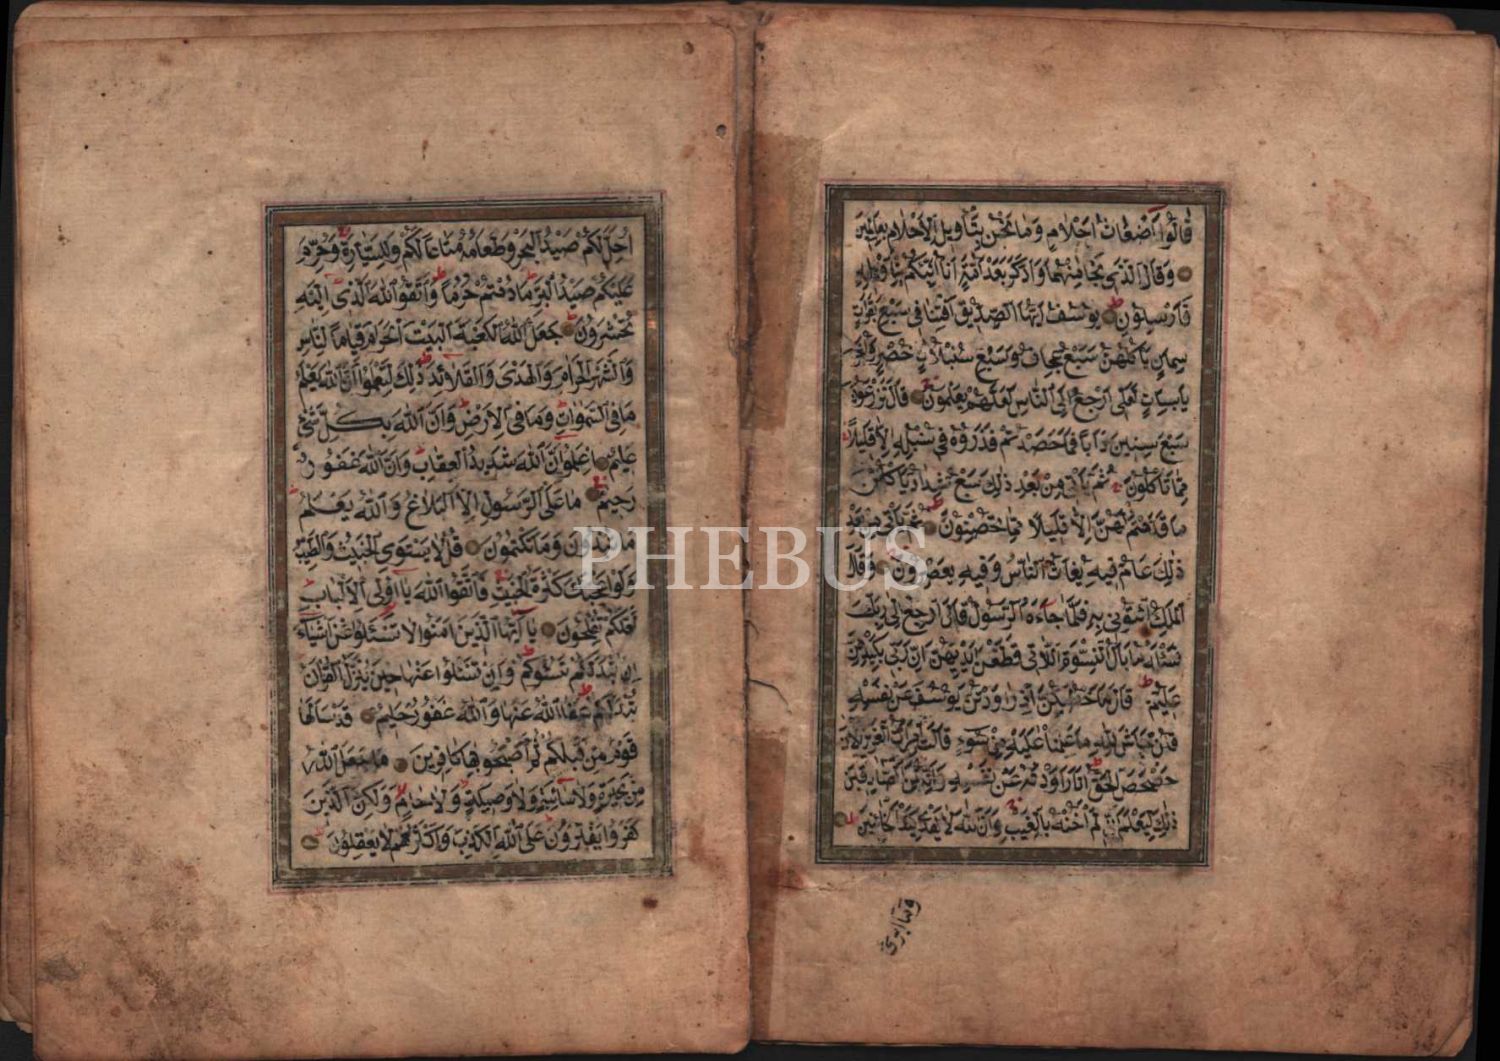 قالوا أضغاث أحلام وما نحن بتأويل الأحلام بعالمين
وقال الذي نجا منهما وادكر بعد أمة أنا أنبئكم بتأويله
فأرسلون يوسف أيها الصديق أفتنا في سبع بقرات
سمان يأكلهن سبع عجاف وسبع سنبلات خضر وأخر
يابسات لعلي أرجع إلى الناس لعلهم يعلمون قال تزرعون
سبع سنين دأبا فما حصدتم فذروه في سنبله إلا قليلا
مما تأكلون ثم يأتي من بعد ذلك سبع شداد يأكلن
ما قدمتم لهن إلا قليلا مما تحصنون ثم يأتي من بعد
ذلك عام فيه يغاث الناس وفيه يعصرون وقال
الملك ائتوني به فلما جاءه الرسول قال ارجع إلى ربك
فسئله ما بال النسوة اللاتي قطعن أيديهن إن ربي بكيدهن
عليم قال ما خطبكن إذ راودتن يوسف عن نفسه
قلن حاش لله ما علمنا عليه من سوء قالت امرأت العزيز الآن
حصحص الحق أنا راودته عن نفسه وإنه لمن الصادقين
ذلك ليعلم أني لم أخنه بالغيب وأن الله لا يهدي كيد الخائنين
وما أبرئ
أحل لكم صيد البحر وطعامه متاعا لكم وللسيارة وحرم
عليكم صيد البر ما دمتم حرما واتقوا الله الذي إليه
تحشرون جعل الله الكعبة البيت الحرام قياما للناس
والشهر الحرام والهدى والقلائد ذلك لتعلموا أن الله يعلم
ما في السموات وما في الأرض وأن الله بكل شئ
عليم اعلموا أن الله شديد العقاب وأن الله غفور
رحيم ما على الرسول إلا البلاغ والله يعلم
ما تبدون وما تكتمون قل لا يستوي الخبيث والطيب
ولو أعجبك كثرة الخبيث فاتقوا الله يا أولي الألباب
لعلكم تفلحون يا أيها الذين آمنوا لا تسئلوا عن أشياء
إن تبد لكم تسؤكم وإن تسئلوا عنها حين ينزل القرآن
تبد لكم عفا الله عنها والله غفور حليم قد سألها
قوم من قبلكم ثم أصبحوا بها كافرين ما جعل الله
من بحيرة ولا سائبة ولا وصيلة ولا حام ولكن الذين
كفروا يفترون على الله الكذب وأكثرهم لا يعقلون
PHEBUS